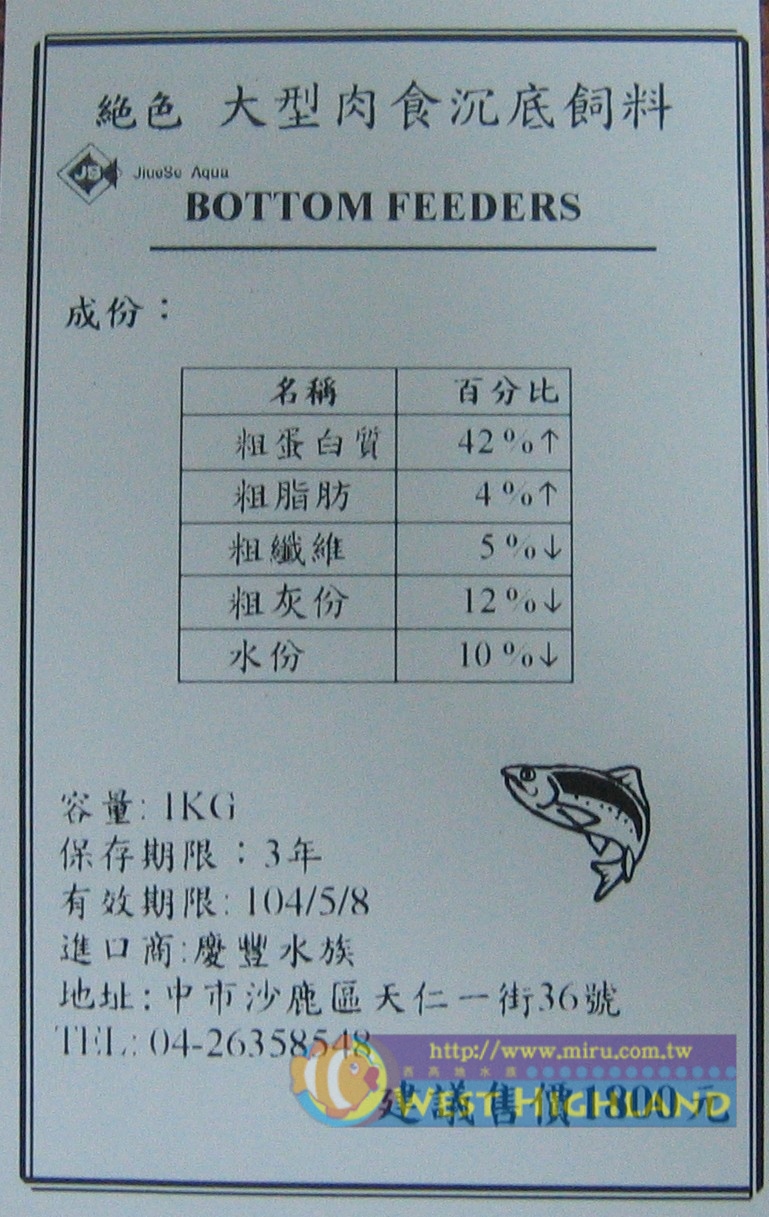 絕色 大型肉食沉底飼料
JS JiueSe Aqua
BOTTOM FEEDERS
成份：
名稱 百分比
粗蛋白質 42%↑
粗脂肪 4%↑
粗纖維 5%↓
粗灰份 12%↓
水份 10%↓
容量: 1KG
保存期限：3年
有效期限: 104/5/8
進口商:慶豐水族
地址: 中市沙鹿區天仁一街36號
TEL: 04-26358548
http://www.miru.com.tw
西高地水族
WEST HIGHLAND
建議售價1800元